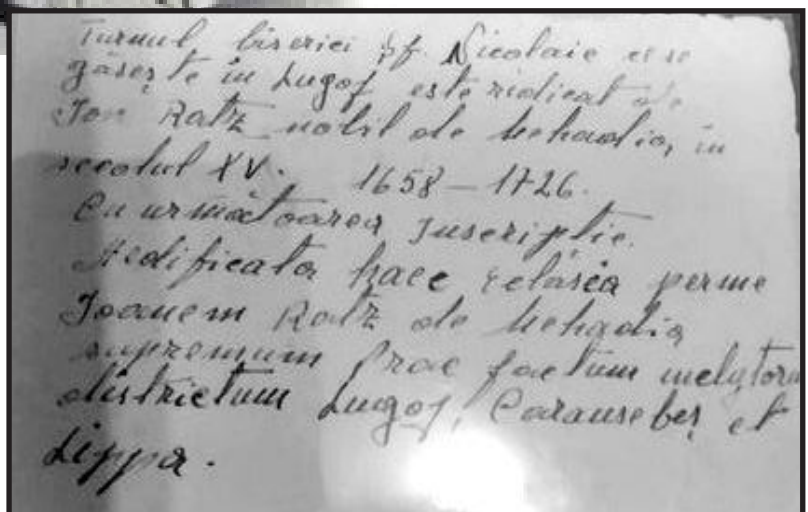 Turnul bisericii Sf. Nicolaie ce se
găsește în Lugoj este ridicat de
Ion Ratz nobil de Mehadia, în
secolul XV. 1658 – 1726.
Cu următoarea Inscripție.
Aedificata haec eclasia perme
Joanem Ratz de Mehadia
supremum prae factum
districtum Lugoj, Caransebeș et
Lippa.